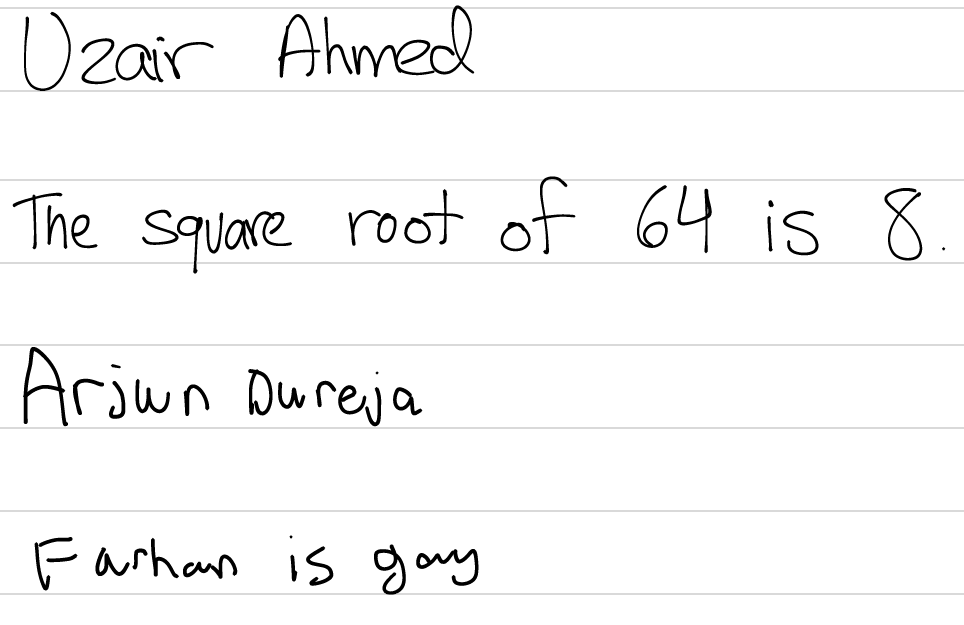 Uzair Ahmed
The square root of 64 is 8.
Arjun Dureja
Farhan is gay